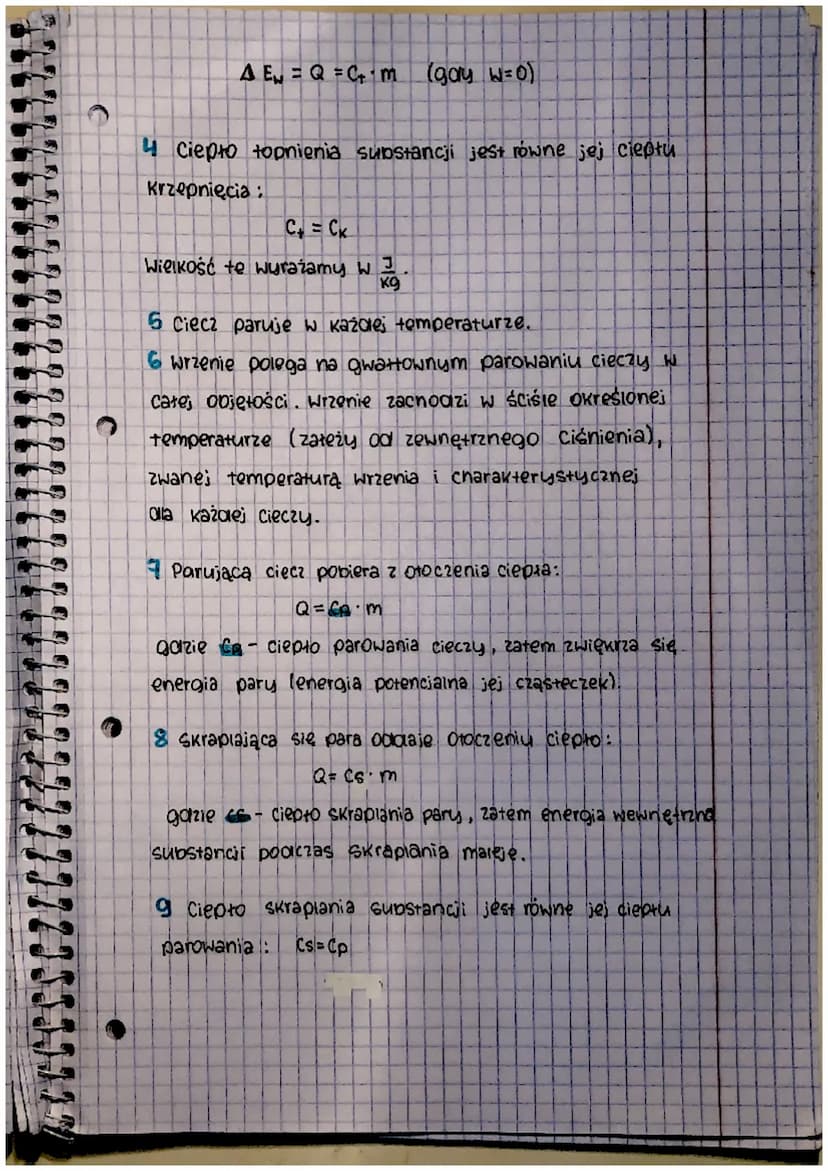 Δ Ew = Q = Ct · m (gdy W=0)
4 Ciepło topnienia substancji jest równe jej ciepłu
krzepnięcia :
Ct = Ck
Wielkość tę wyrażamy w J/kg .
5 Ciecz paruje w każdej temperaturze.
6 Wrzenie polega na gwałtownym parowaniu cieczy w
całej objętości. Wrzenie zachodzi w ściśle określonej
temperaturze (zależy od zewnętrznego ciśnienia),
zwanej temperaturą wrzenia i charakterystycznej
dla każdej cieczy.
7 Parującą ciecz pobiera z otoczenia ciepła:
Q = Cp · m
gdzie Cp - ciepło parowania cieczy, zatem zwiększa się
energia pary (energia potencjalna jej cząsteczek).
8 Skraplająca się para oddaje otoczeniu ciepło :
Q = Cs · m
gdzie Cs - ciepło skraplania pary, zatem energia wewnętrzna
substancji podczas skraplania maleje.
9 Ciepło skraplania substancji jest równe jej ciepłu
parowania : Cs = Cp